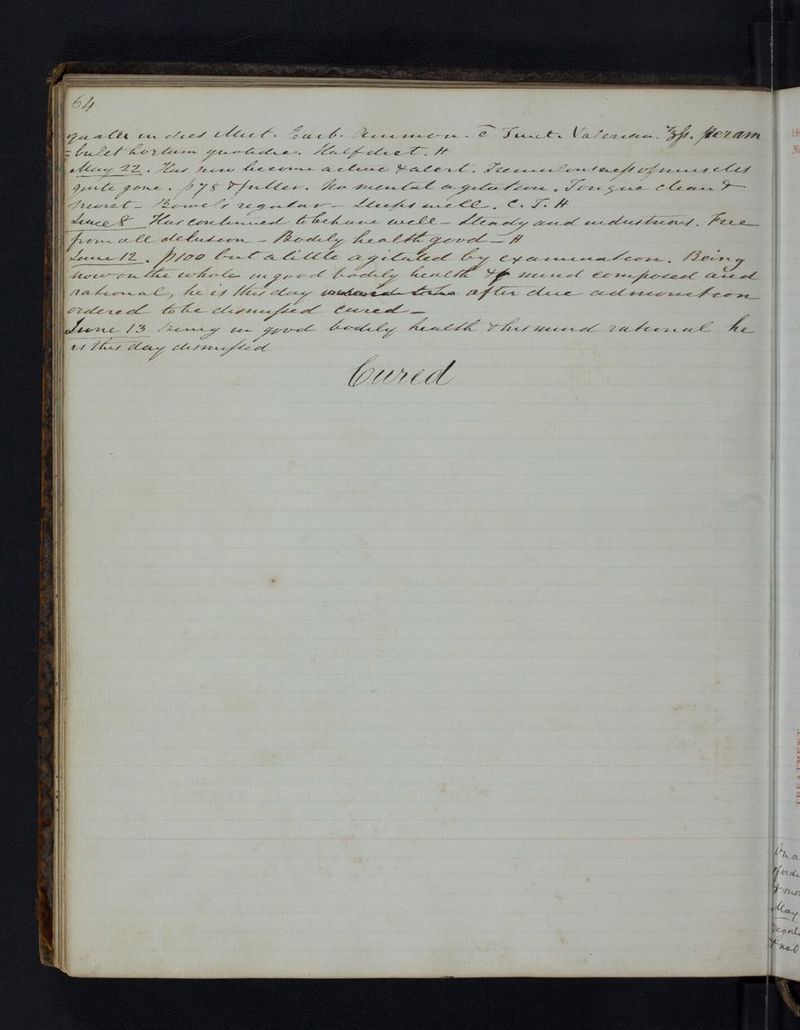 64
quater in dies Mist. Carb. Ammon. c̄ Tinct. Valerian. ʒſs. Peram
=bulet hortum quotidie. Half diet. H
May 22. Has now become active & alert. Tremulousness of muscles
quite gone. p 78 & fuller. No mental agitation. Tongue clean &
moist - Bowels regular - Sleeps well. C. T. H
June 8 Has continued to behave well - Steady and industrious. Free
from all delusion - Bodily health good - H
June 12. p 100 but a little agitated by examination. Being
now on the whole in good bodily health & mind composed and
rational, he is this day after due admonition
ordered to be dismissed cured -
June 13 being in good bodily health & his mind rational he
is this day dismissed
Cured
18
TREATMENT
On a
May